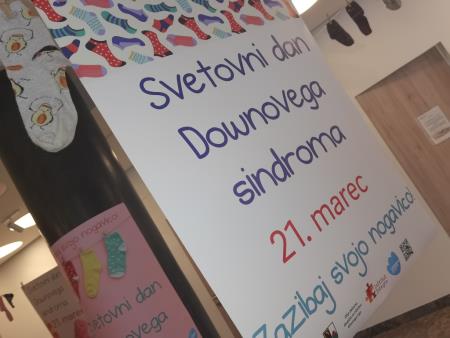 Svetovni dan
Downovega
sindroma
21. marec
Zazibaj svojo nogavico!
svojo nogavico!
Svetovni dan
Downovega
Svetovni dan
Downovega
sindroma
21. marec